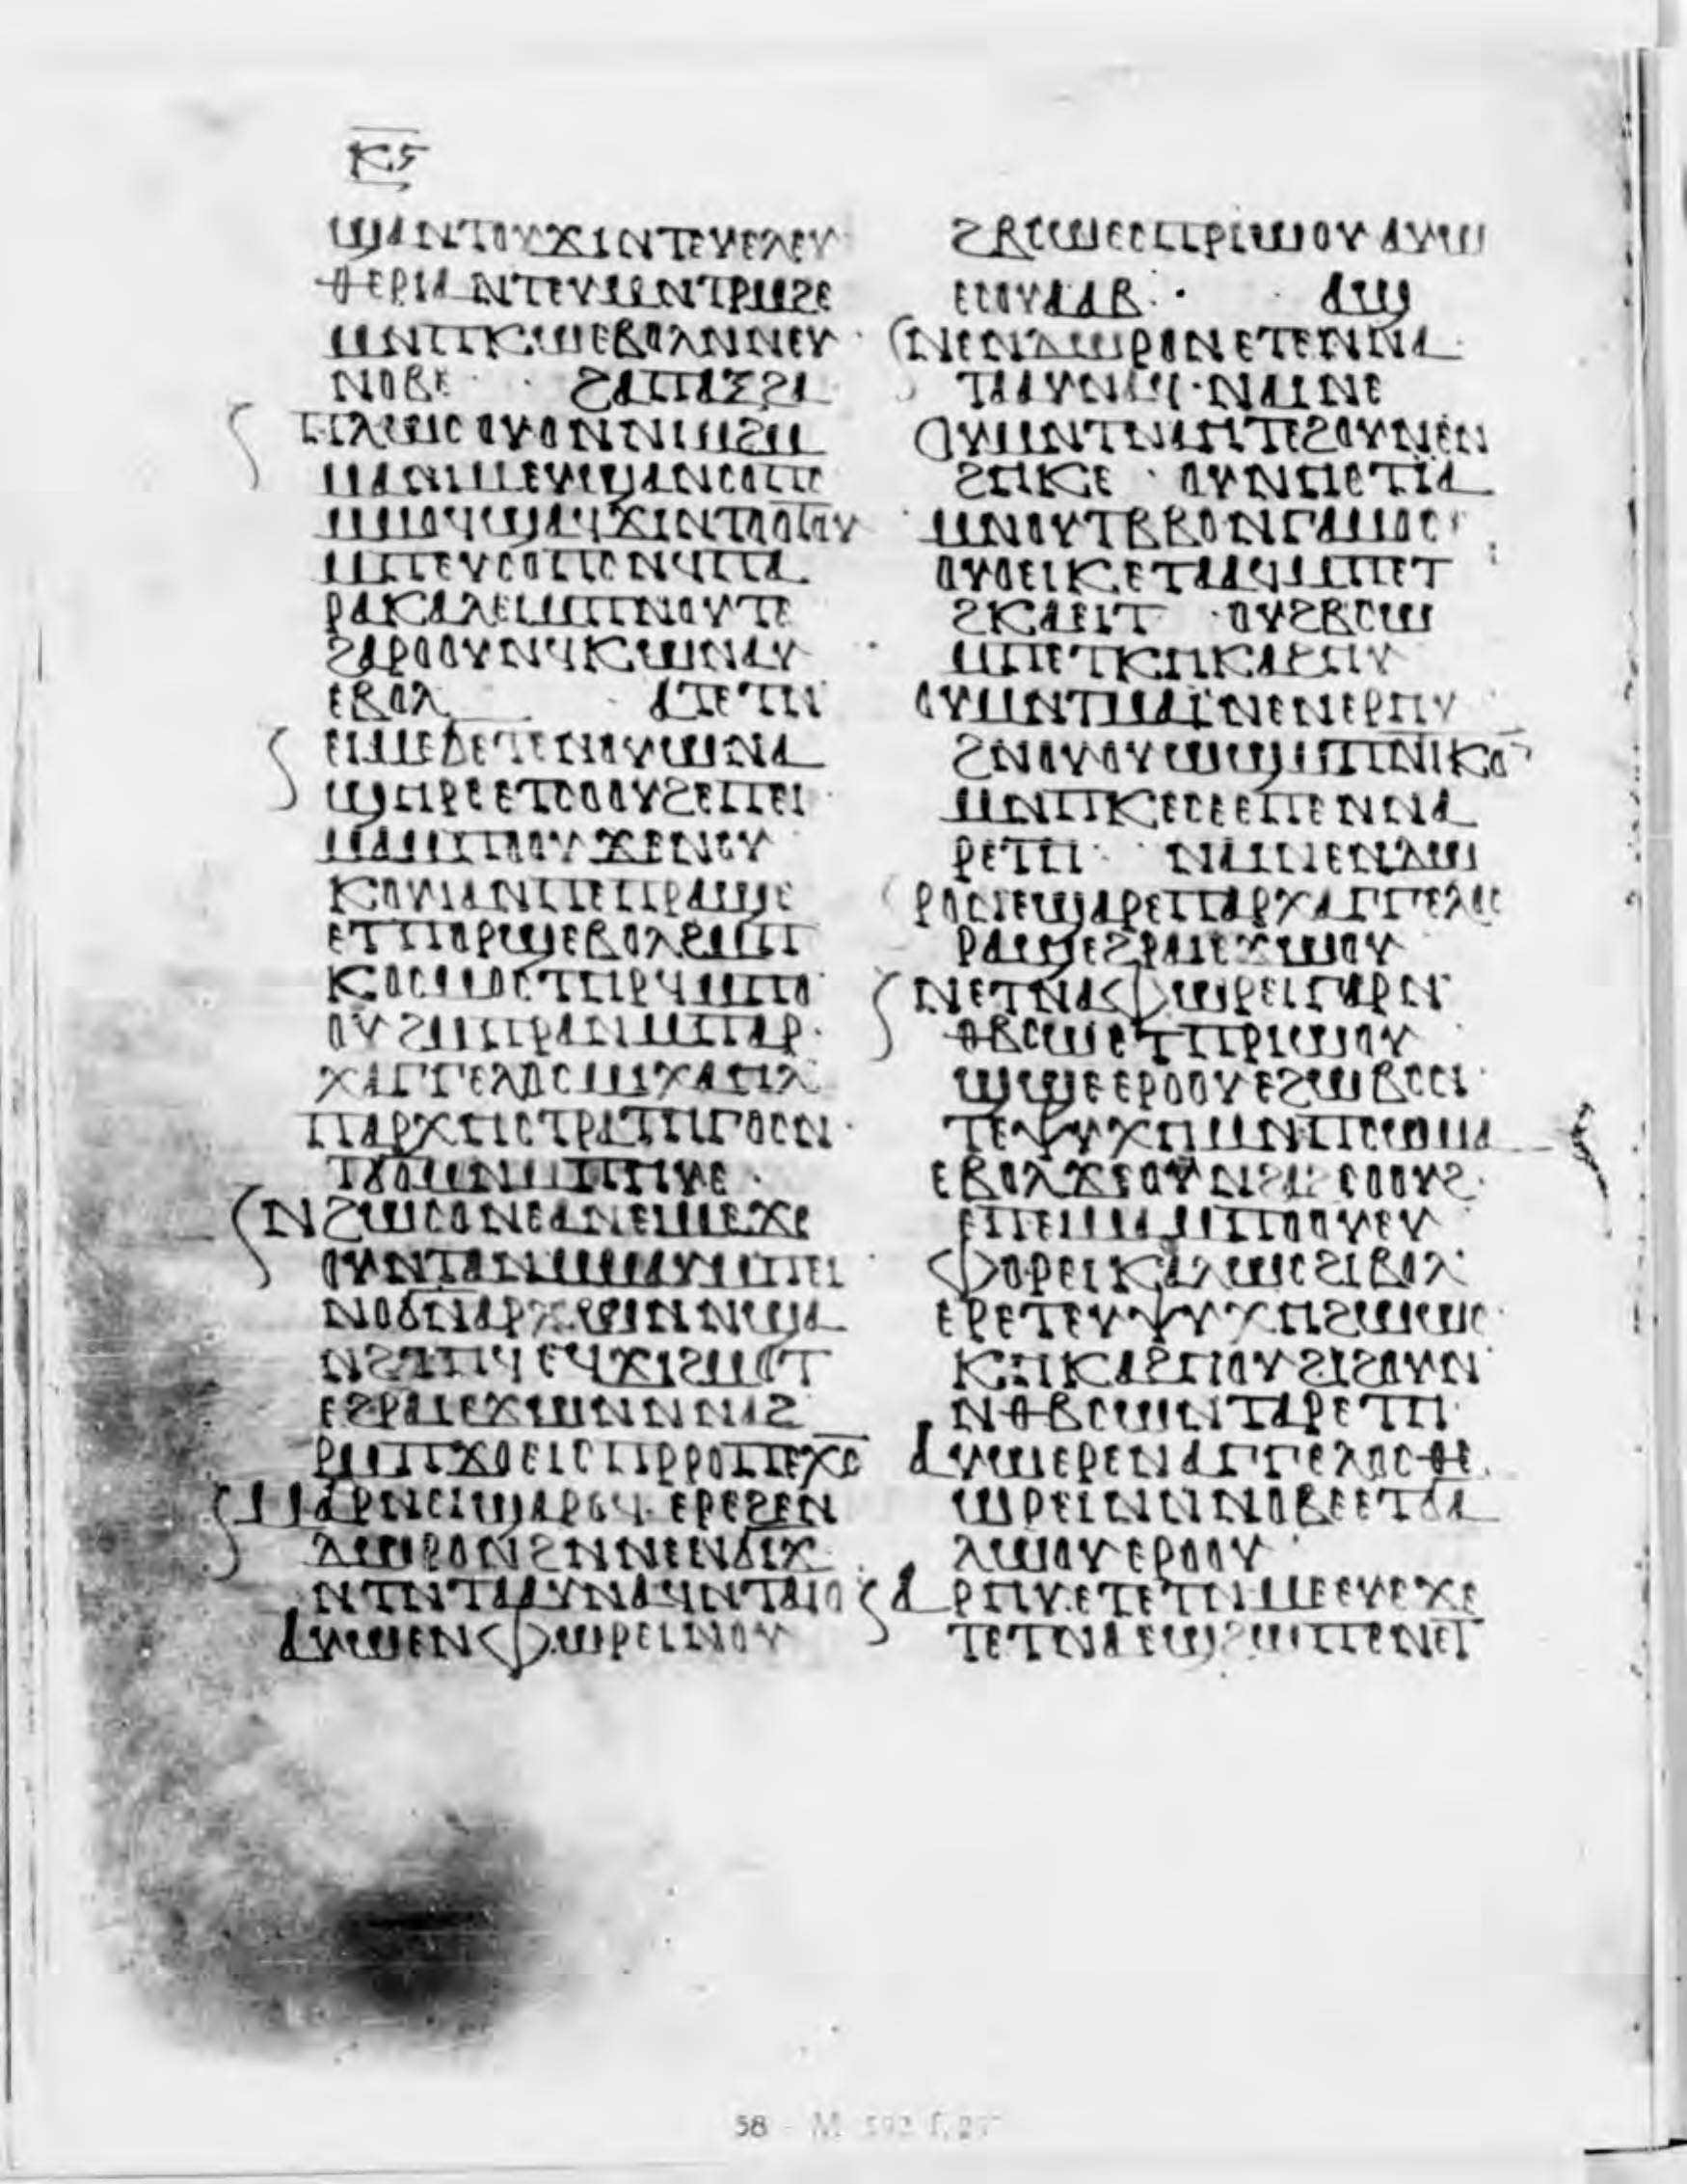 ⲕⲋ
ϣⲁⲛⲧⲟⲩϫⲓⲛⲧⲉⲩⲉⲗⲉⲩ
ⲑⲉⲣⲓⲁⲛⲧⲉⲩⲙⲛⲧⲣⲙϩⲉ
ⲙⲛⲡⲕⲱⲉⲃⲟⲗⲛⲛⲉⲩ
ⲛⲟⲃⲉ· ϩⲁⲡⲁⲝϩⲁ
ⲡⲗⲱⲥⲟⲩⲟⲛⲛⲓⲙϩⲙ
ⲙⲁⲛⲓⲙⲉⲩϣⲁⲛⲥⲟⲡⲥ
ⲙⲙⲟϥϣⲁϥϫⲓⲛⲧⲟⲟⲧⲟⲩ
ⲙⲡⲉⲩⲥⲟⲡⲥⲛϥⲡⲁ
ⲣⲁⲕⲁⲗⲉⲓⲙⲡⲛⲟⲩⲧⲉ
ϩⲁⲣⲟⲟⲩⲛϥⲕⲱⲛⲁⲩ
ⲉⲃⲟⲗ ⲁⲧⲉⲧⲛ
ⲉⲓⲙⲉϭⲉⲧⲉⲛⲟⲩⲱⲛⲁ
ϣⲏⲣⲉⲉⲧⲥⲟⲟⲩϩⲉⲡⲉⲓ
ⲙⲁⲙⲡⲟⲟⲩϫⲉⲛⲟⲩ
ⲕⲟⲩⲓⲁⲛⲡⲉⲡⲣⲁϣⲉ
ⲉⲧⲡⲟⲣϣⲉⲃⲟⲗϩⲙⲡ
ⲕⲟⲥⲙⲟⲥⲧⲏⲣϥⲙⲡⲟ
ⲟⲩϩⲙⲡⲣⲁⲛⲙⲡⲁⲣ
ⲭⲁⲅⲅⲉⲗⲟⲥⲙⲓⲭⲁⲏⲗ
ⲡⲁⲣⲭⲏⲥⲧⲣⲁⲧⲏⲅⲟⲥⲛ
ⲧϭⲟⲙⲛⲙⲡⲏⲩⲉ·
ⲛϩⲱⲥⲟⲛⲉⲁⲛⲉⲓⲙⲉϫⲉ
ⲟⲩⲛⲧⲁⲛⲙⲙⲁⲩⲙⲡⲉⲓ
ⲛⲟϭⲛⲁⲣⲭⲱⲛⲛⲙⲡϣⲁ
ⲛϩⲧⲏϥⲉϥϫⲓϩⲙⲟⲧ
ⲉϩⲣⲁⲓⲉϫⲱⲛⲛⲛⲁϩ
ⲣⲙⲡϫⲟⲉⲓⲥⲡⲣⲣⲟⲡⲉⲭⲥ
ⲙⲁⲣⲛⲥⲙϣⲁⲣⲟϥ·ⲉⲣⲉϩⲉⲛ
ⲇⲱⲣⲟⲛϩⲛⲛⲉⲛϭⲓϫ
ⲛⲧⲛⲧⲁⲁⲩⲛⲁϥⲛⲧⲁⲓⲟ
ⲁⲩⲱⲉⲛⲫⲱⲣⲉⲓⲛⲟⲩ
ϩⲃⲥⲱⲉⲥⲡⲣⲓⲱⲟⲩⲁⲩⲱ
ⲉⲥⲟⲩⲁⲁⲃ· ⲁϣ
ⲛⲉⲛⲇⲱⲣⲟⲛⲉⲧⲉⲛⲛⲁ
ⲧⲁⲁⲩⲛⲁϥ·ⲛⲁⲓⲛⲉ
ⲟⲩⲙⲛⲧⲛⲁⲏⲧⲉϩⲟⲩⲛⲉⲛ
ϩⲏⲕⲉ· ⲟⲩⲛⲏⲥⲧⲓⲁ
ⲙⲛⲟⲩⲧⲃⲃⲟⲛⲅⲁⲙⲟⲥ
ⲟⲩⲟⲉⲓⲕⲉⲧⲁⲁϥⲙⲡⲉⲧ
ϩⲕⲁⲉⲓⲧ·ⲟⲩϩⲃⲥⲱ
ⲙⲡⲉⲧⲕⲏⲕⲁϩⲏⲩ
ⲟⲩⲙⲛⲧⲙⲁⲓⲛⲉⲛⲉⲣⲏⲩ
ϩⲛⲟⲩⲟⲩⲱϣⲙⲡⲛⲓⲕⲟⲛ
ⲙⲛⲡⲕⲉⲥⲉⲉⲡⲉⲛⲛⲁ
ⲣⲉⲧⲏ· ⲛⲁⲓⲛⲉⲛⲇⲱ
ⲣⲟⲛⲉϣⲁⲣⲉⲡⲁⲣⲭⲁⲅⲅⲉⲗⲟⲥ
ⲣⲁϣⲉⲉϩⲣⲁⲓⲉϫⲱⲟⲩ
ⲛⲉⲧⲛⲁⲫⲱⲣⲉⲓⲅⲁⲣⲛ
ⲑⲃⲥⲱⲉⲧⲡⲣⲓⲱⲟⲩ
ϣϣⲉⲉⲣⲟⲟⲩⲉϩⲱⲃⲥⲉⲛ
ⲧⲉⲯⲩⲭⲏⲙⲛⲡⲥⲱⲙⲁ
ⲉⲃⲟⲗϫⲉⲟⲩⲛϩⲁϩⲥⲟⲟⲩϩ
ⲉⲡⲉⲓⲙⲁⲙⲡⲟⲟⲩⲉⲩ
ⲫⲟⲣⲉⲓⲕⲁⲗⲱⲥϩⲓⲃⲟⲗ
ⲉⲣⲉⲧⲉⲩⲯⲩⲭⲏϩⲱⲱⲥ
ⲕⲏⲕⲁϩⲏⲟⲩϩⲓϩⲟⲩⲛ
ⲛⲑⲃⲥⲱⲛⲧⲁⲣⲉⲧⲏ
ⲁⲩⲱⲉⲣⲉⲛⲁⲅⲅⲉⲗⲟⲥⲑⲉ
ⲱⲣⲉⲓⲛⲛⲛⲟⲃⲉⲉⲧϭⲁ
ⲗⲱⲟⲩⲉⲣⲟⲟⲩ
ⲁⲣⲏⲩⲉⲧⲉⲧⲛⲙⲉⲉⲩⲉϫⲉ
ⲧⲉⲧⲛⲁⲉϣϩⲱⲡⲉⲛⲉⲧ